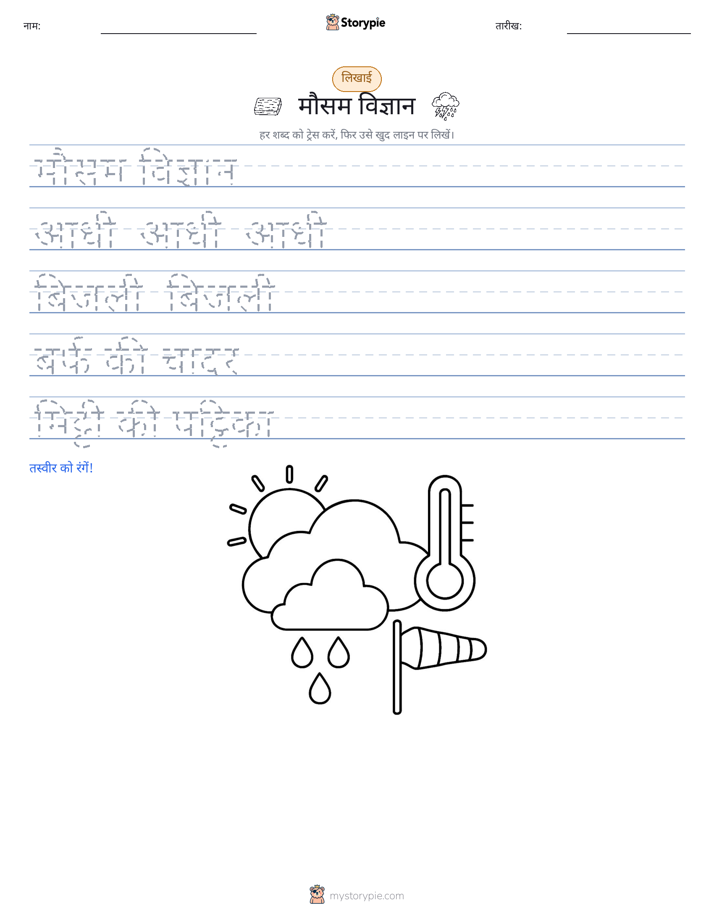 नाम:
Storypie
तारीख:
लिखाई
मौसम विज्ञान
हर शब्द को ट्रेस करें, फिर उसे खुद लाइन पर लिखें।
मौसम विज्ञान
आधी आधी आधी
बिजली बिजली
बर्फ की चादर
मिट्टी की पट्टिका
तस्वीर को रंगें!
mystorypie.com